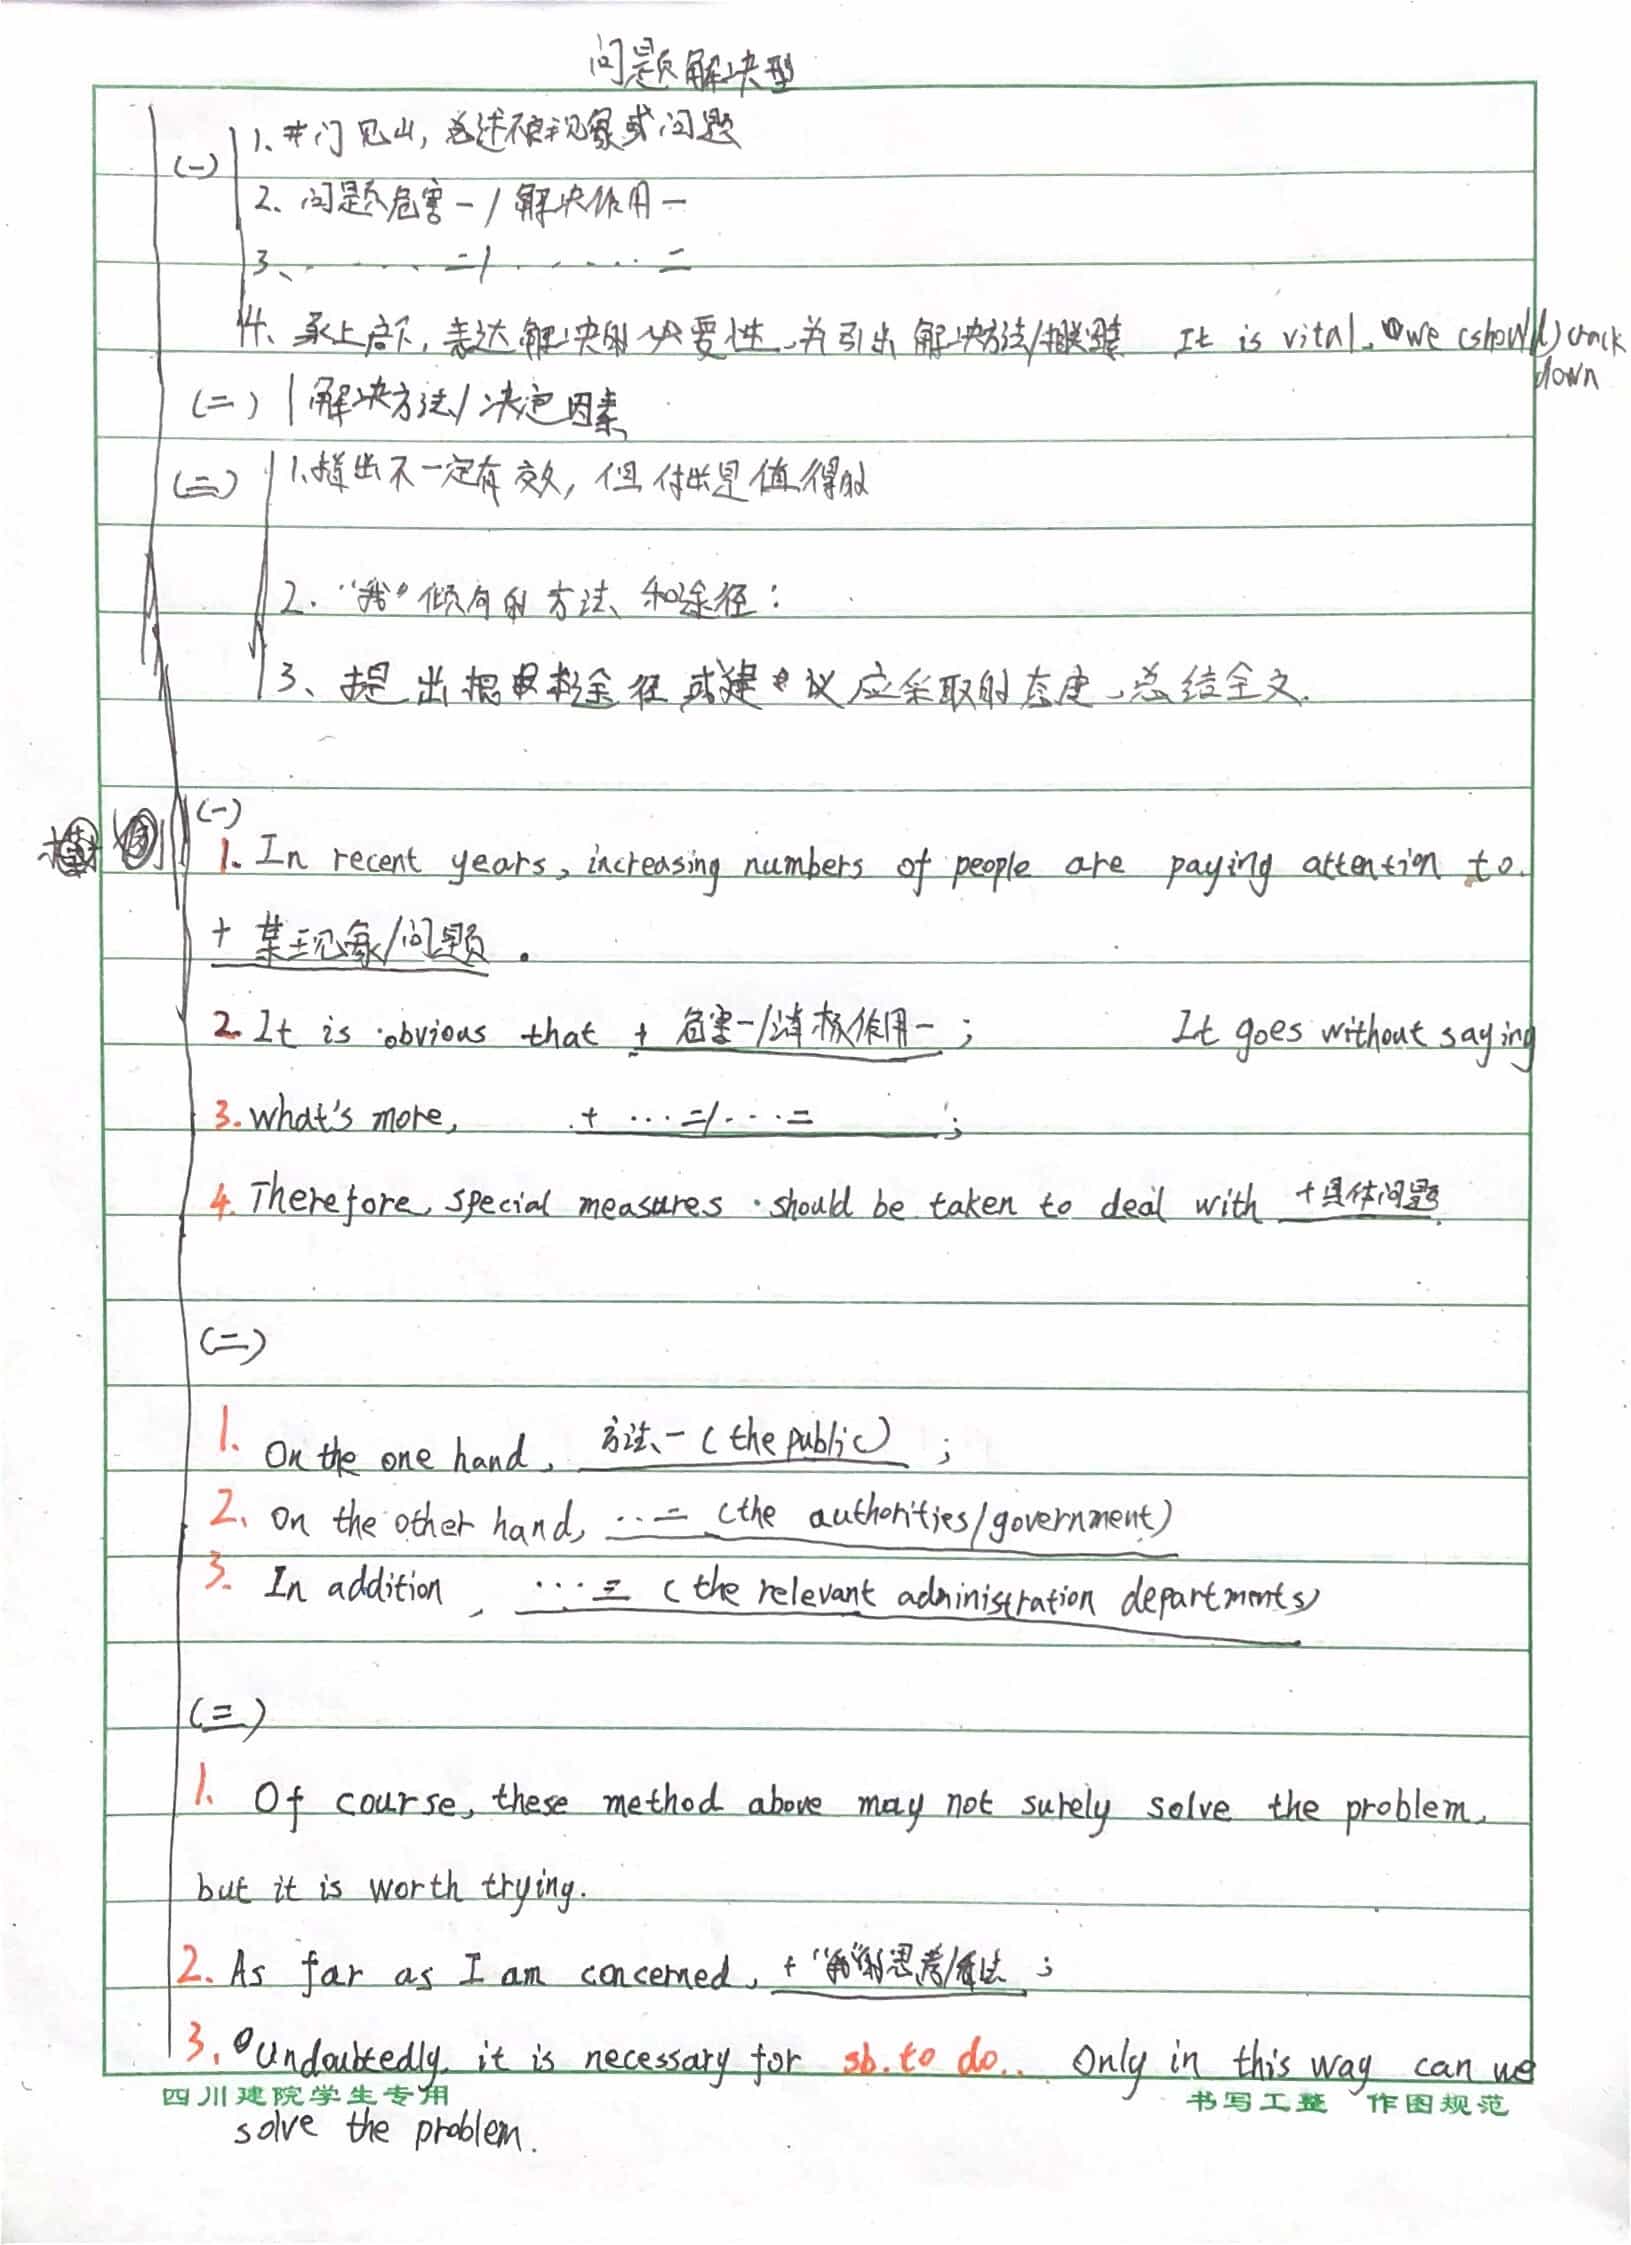 问题解决型
(一) 1、开门见山，总述不良现象或问题
2、问题危害一/解决作用一
3、······二/······二
4、承上启下，表达解决的必要性，并引出解决方法/ It is vital, we (should) crack down
(二) 解决方法/决定因素
(三) 1.指出不一定有效，但付出是值得的
2."我"倾向的方法和途径：
3、提出 途径或建议应采取的态度，总结全文.
(一)
1. In recent years, increasing numbers of people are paying attention to.
+ 某现象/问题.
2. It is obvious that + 危害一/消极作用一; It goes without saying
3. What's more, + ···二/···二;
4. Therefore, special measures should be taken to deal with +具体问题.
(二)
1. On the one hand, 方法一 (the public);
2. On the other hand, ···二 (the authorities/government)
3. In addition, ···三 (the relevant administration departments)
(三)
1. Of course, these method above may not surely solve the problem,
but it is worth trying.
2. As far as I am concerned, + "我"的思考/看法;
3. Undoubtedly, it is necessary for sb. to do.. Only in this way can we
四川建院学生专用 书写工整 作图规范
solve the problem.